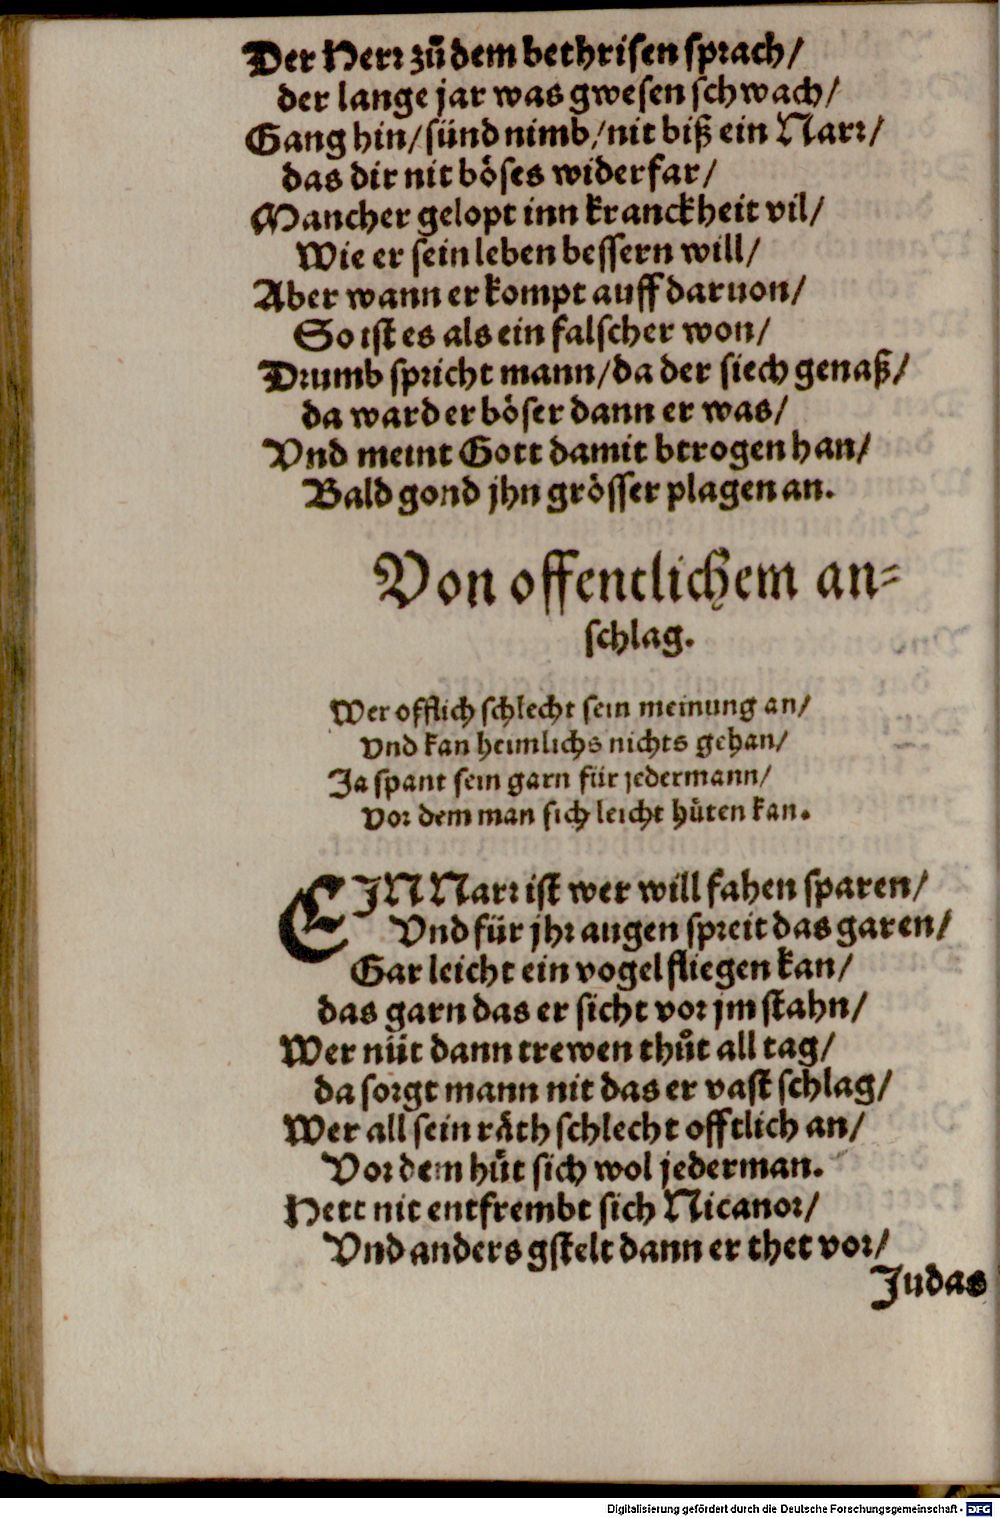 Der Herr zů dem bethrisen sprach/
der lange jar was gwesen schwach/
Gang hin/ sünd nimb/ nit biß ein Narr/
das dir nit böses widerfar/
Mancher gelopt inn kranckheit vil/
Wie er sein leben bessern will/
Aber wann er kompt auff daruon/
So ist es als ein falscher won/
Drumb spricht mann/ da der siech genaß/
da ward er böser dann er was/
Vnd meint Gott damit btrogen han/
Bald gond jhn grösser plagen an.
Von offentlichem an-
schlag.
Wer offlich schlecht sein meinung an/
vnd kan heimlichs nichts gehan/
Ja spant sein garn für jedermann/
vor dem man sich leicht hüten kan.
EJN Narr ist wer will fahen sparen/
Vnd für jhr augen spreit das garen/
Gar leicht ein vogel fliegen kan/
das garn das er sicht vor jm stahn/
Wer nüt dann trewen thůt all tag/
da sorgt mann nit das er vast schlag/
Wer all sein räth schlecht offtlich an/
Vor dem hüt sich wol jederman.
Hett nit entfrembt sich Nicanor/
Vnd anders gstelt dann er thet vor/
Judas
Digitalisierung gefördert durch die Deutsche Forschungsgemeinschaft - DFG